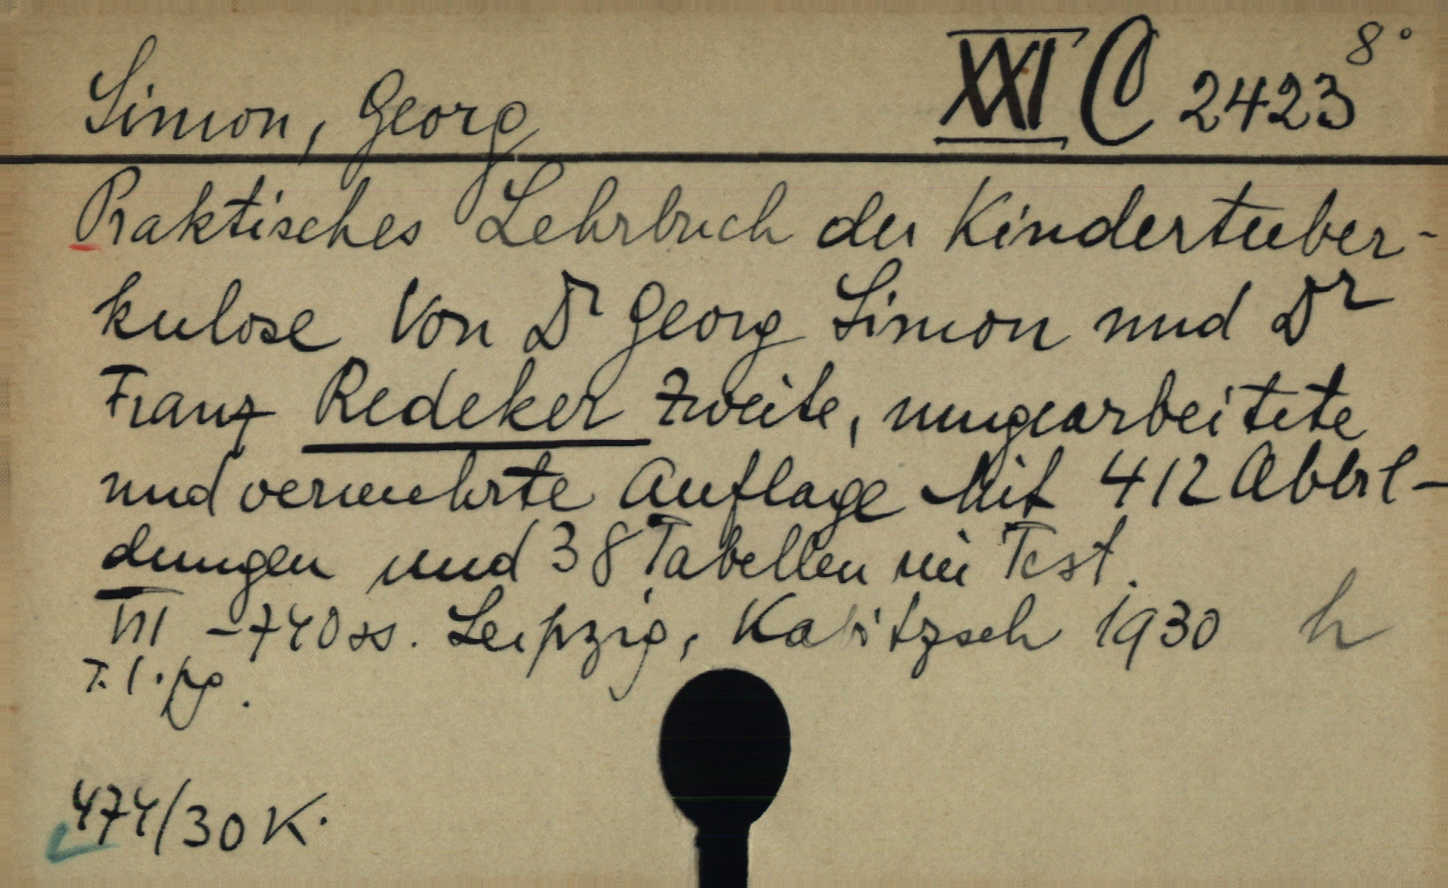 Simon, Georg XXI C 2423 8°
Praktisches Lehrbuch der Kindertuber-
kulose Von Dr Georg Simon und Dr
Franz Redeker Zweite, umgearbeitete
und vermehrte Auflage Mit 412 Abbil-
dungen und 38 Tabellen im Text.
VIII - 740 ss. Leipzig, Kabitzsch 1930 h
T. l. pg.
474/30 K.